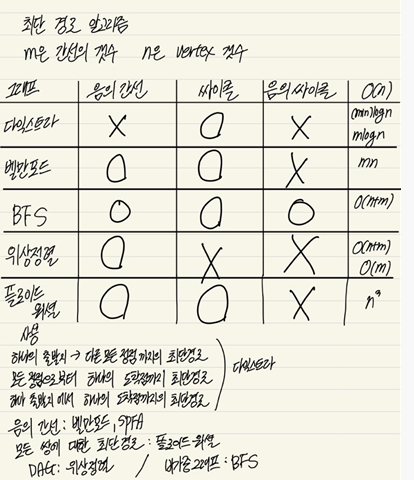 최단 경로 알고리즘
m은 간선의 갯수 n은 vertex 갯수
그래프 음의 간선 싸이클 음의 싸이클 O(n)
다익스트라 X O X (m+n)logn mlogn
벨만포드 O O X mn
BFS O O O O(n+m)
위상정렬 O X X O(n+m) O(m)
플로이드 워셜 O O X n³
사용
하나의 출발지 → 다른 모든 정점까지의 최단경로
모든 정점으로부터 하나의 도착점까지 최단경로
하나의 출발지에서 하나의 도착점까지의 최단경로
다익스트라
음의 간선 : 벨만포드, SPFA
모든 쌍에 대한 최단경로 : 플로이드 워셜
DAG : 위상정렬 / 비가중그래프 : BFS